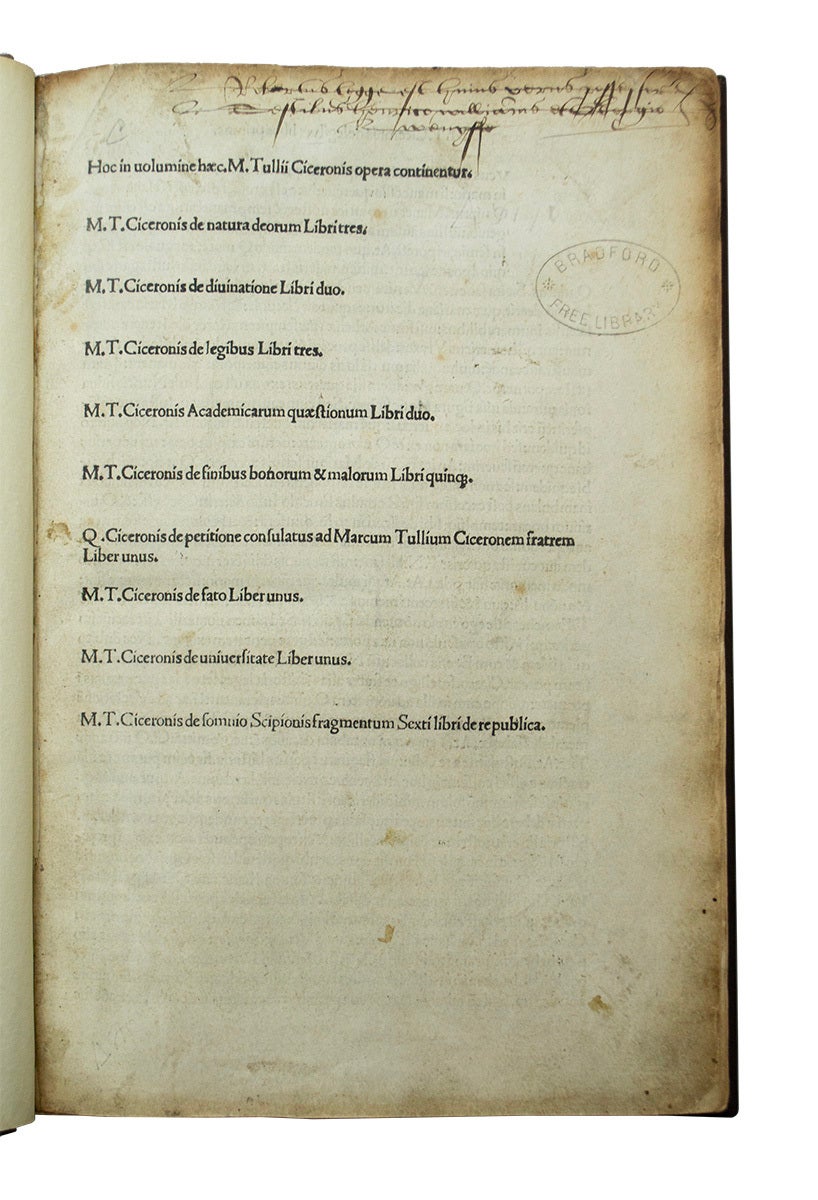 Robertus Legge est huius verus possessor
Testibus henrico williams et Georgio
Hoc in uolumine hæc. M. Tullii Ciceronis opera continentur.
M. T. Ciceronis de natura deorum Libri tres.
M. T. Ciceronis de diuinatione Libri duo.
BRADFORD
FREE LIBRARY
M. T. Ciceronis de legibus Libri tres.
M. T. Ciceronis Academicarum quæſtionum Libri duo.
M. T. Ciceronis de finibus bonorum & malorum Libri quinqꝫ.
Q. Ciceronis de petitione conſulatus ad Marcum Tullium Ciceronem fratrem
Liber unus.
M. T. Ciceronis de fato Liber unus.
M. T. Ciceronis de uniuerſitate Liber unus.
M. T. Ciceronis de ſomnio Scipionis fragmentum Sexti libri de republica.